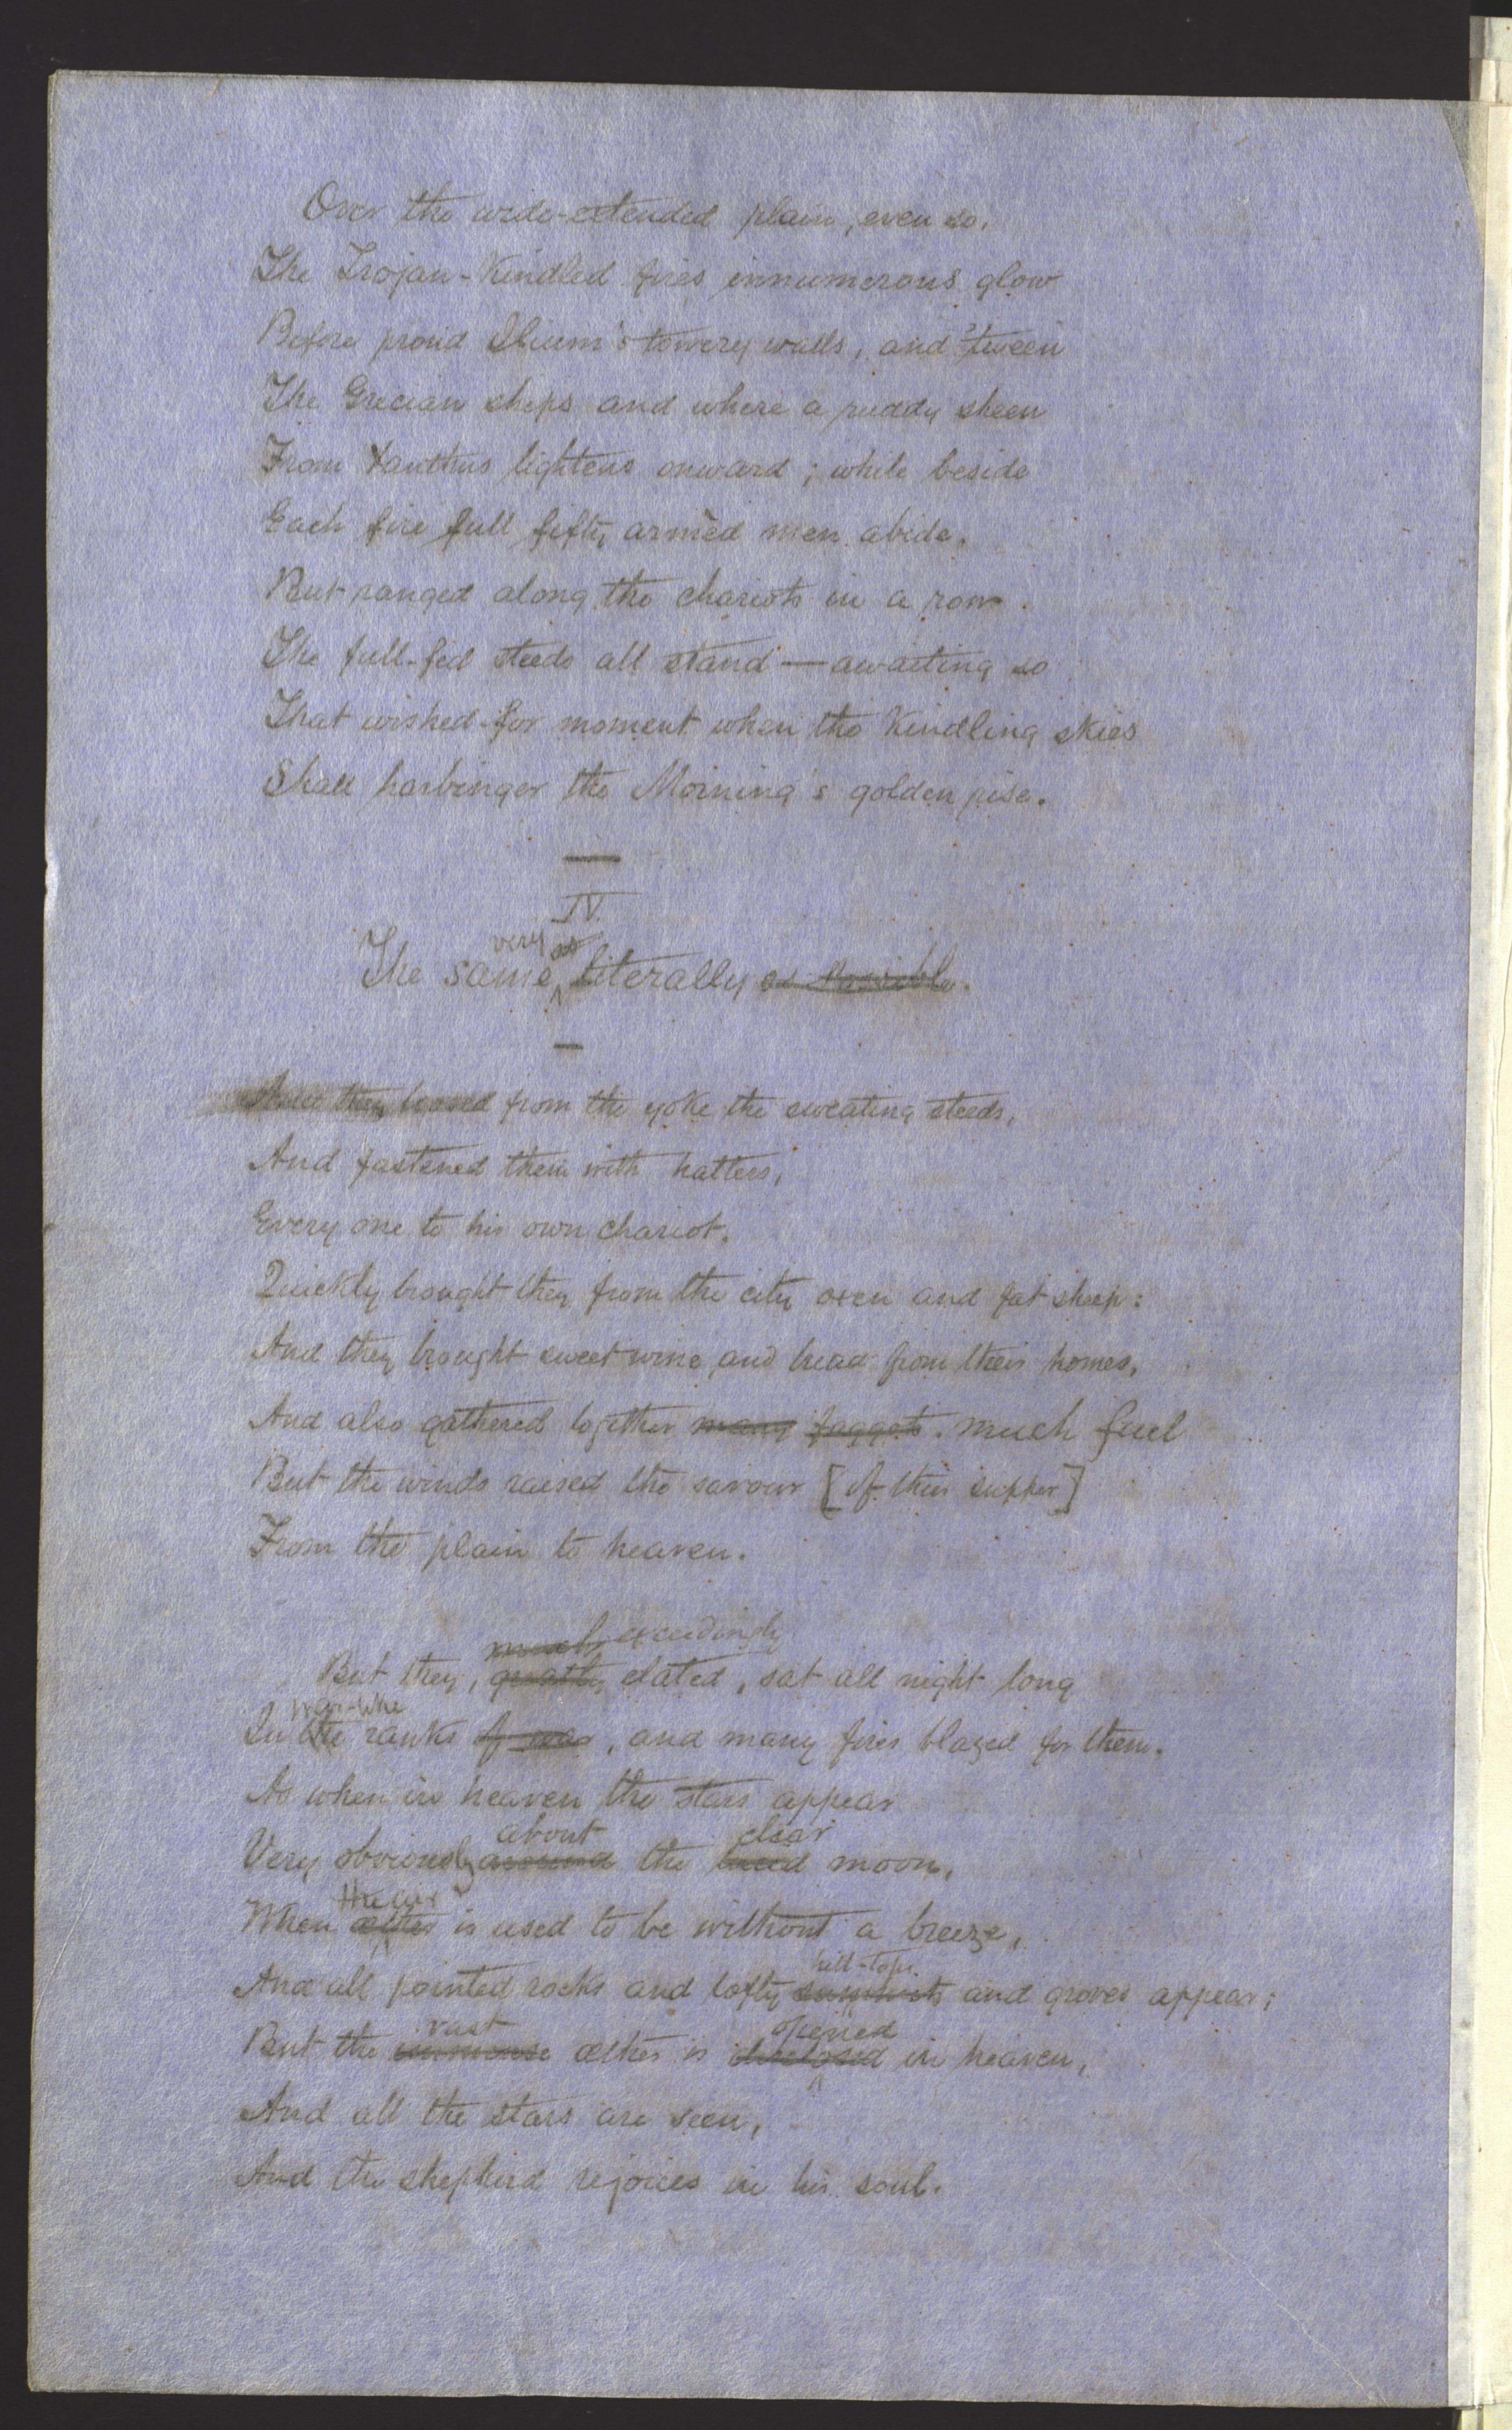 Over the wide-extended plain, even so,
The Trojan-Kindled fires innumerous glow
Before proud Ilium's towery walls, and 'tween
The Grecian ships and where a ruddy sheen
From Xanthus lightens onward; while beside
Each fire full fifty armèd men abide.
But ranged along the chariots in a row
The full-fed steeds all stand — awaiting so
That wished-for moment when the Kindling skies
Shall harbinger the Morning's golden rise.
IV.
very as
The same, literally as possible.
And they loosed from the yoke the sweating steeds,
And fastened them with halters,
Every one to his own chariot.
Quickly brought they from the city oxen and fat sheep:
And they brought sweet wine and bread from their homes,
And also gathered together many faggots. much fuel
But the winds raised the savour [of their supper]
From the plain to heaven.
much exceedingly
But they, greatly elated, sat all night long
war-like
In the ranks of war, and many fires blazed for them.
As when in heaven the stars appear
about clear
Very obviously around the lucid moon,
the air
When æther is used to be without a breeze,
hill-tops
And all pointed rocks and lofty summits and groves appear;
vast opened
But the immense æther is disclosed in heaven,
And all the stars are seen,
And the shepherd rejoices in his soul.